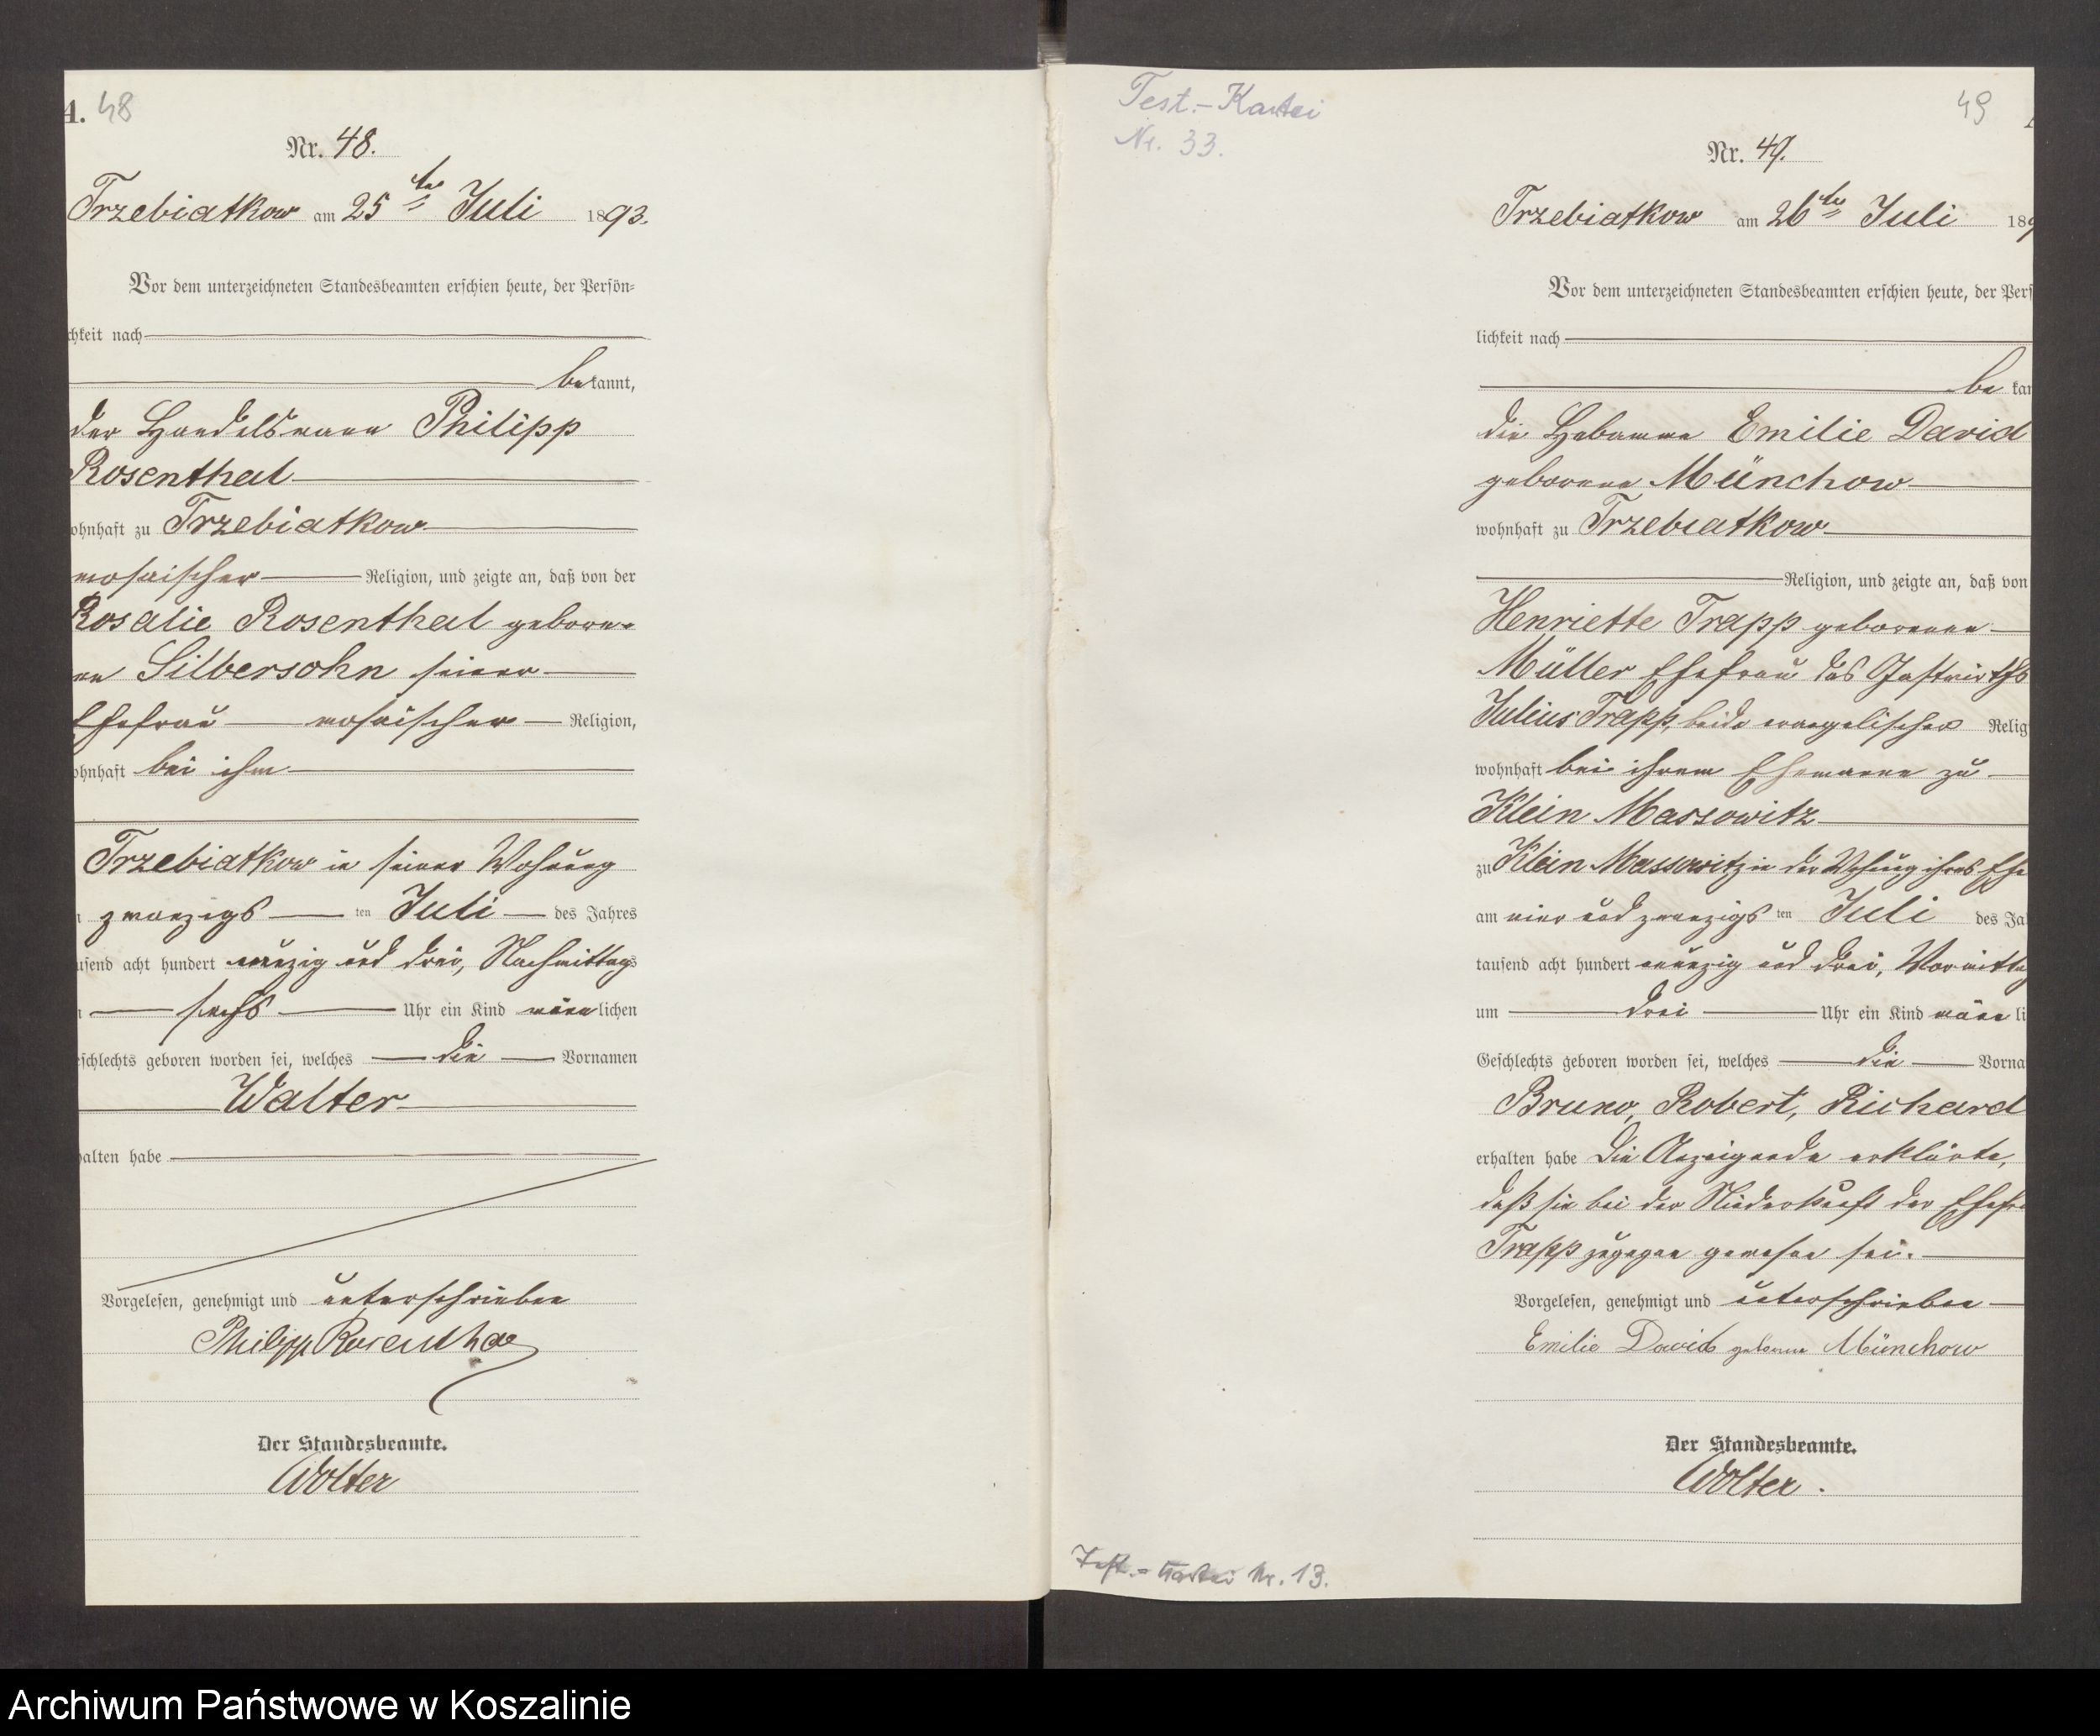 A. 48
Nr. 48.
Trzebiatkow am 25ten Juli 1893.
Vor dem unterzeichneten Standesbeamten erschien heute, der Persön-
chkeit nach
bekannt,
der Handelsmann Philipp
Rosenthal
ohnhaft zu Trzebiatkow
mosaischer Religion, und zeigte an, daß von der
Rosalie Rosenthal gebore-
ne Silbersohn seiner
Ehefrau mosaischer Religion,
ohnhaft bei ihm
Trzebiatkow in seiner Wohnung
zwanzigs ten Juli des Jahres
usend acht hundert neunzig und drei, Nachmittags
sechs Uhr ein Kind männlichen
eschlechts geboren worden sei, welches die Vornamen
Walter
halten habe
Vorgelesen, genehmigt und unterschrieben
Philipp Rosenthal
Der Standesbeamte.
Wolter
Test.-Kartei
Nr. 33.
49
Nr. 49.
Trzebiatkow am 26ten Juli 189
Vor dem unterzeichneten Standesbeamten erschien heute, der Pers
lichkeit nach
be kan
die Hebamme Emilie David
geborene Münchow
wohnhaft zu Trzebiatkow
Religion, und zeigte an, daß von
Henriette Trapp geborenen
Müller Ehefrau des Gastwirths
Julius Trapp, beide evangelischer Relig
wohnhaft bei ihrem Ehemanne zu
Klein Massowitz
zu Klein Massowitz in der Wohnung ihres Ehe
am vier und zwanzigs ten Juli des Ja
tausend acht hundert neunzig und drei, Vormittag
um drei Uhr ein Kind männ li
Geschlechts geboren worden sei, welches die Vorna
Bruno, Robert, Richard
erhalten habe Die Anzeigende erklärte,
daß sie bei der Niederkunft der Ehefra
Trapp zugegen gewesen sei.
Vorgelesen, genehmigt und unterschrieben
Emilie David geborene Münchow
Der Standesbeamte.
Wolter.
Test.-Kartei Nr. 13.
Archiwum Państwowe w Koszalinie